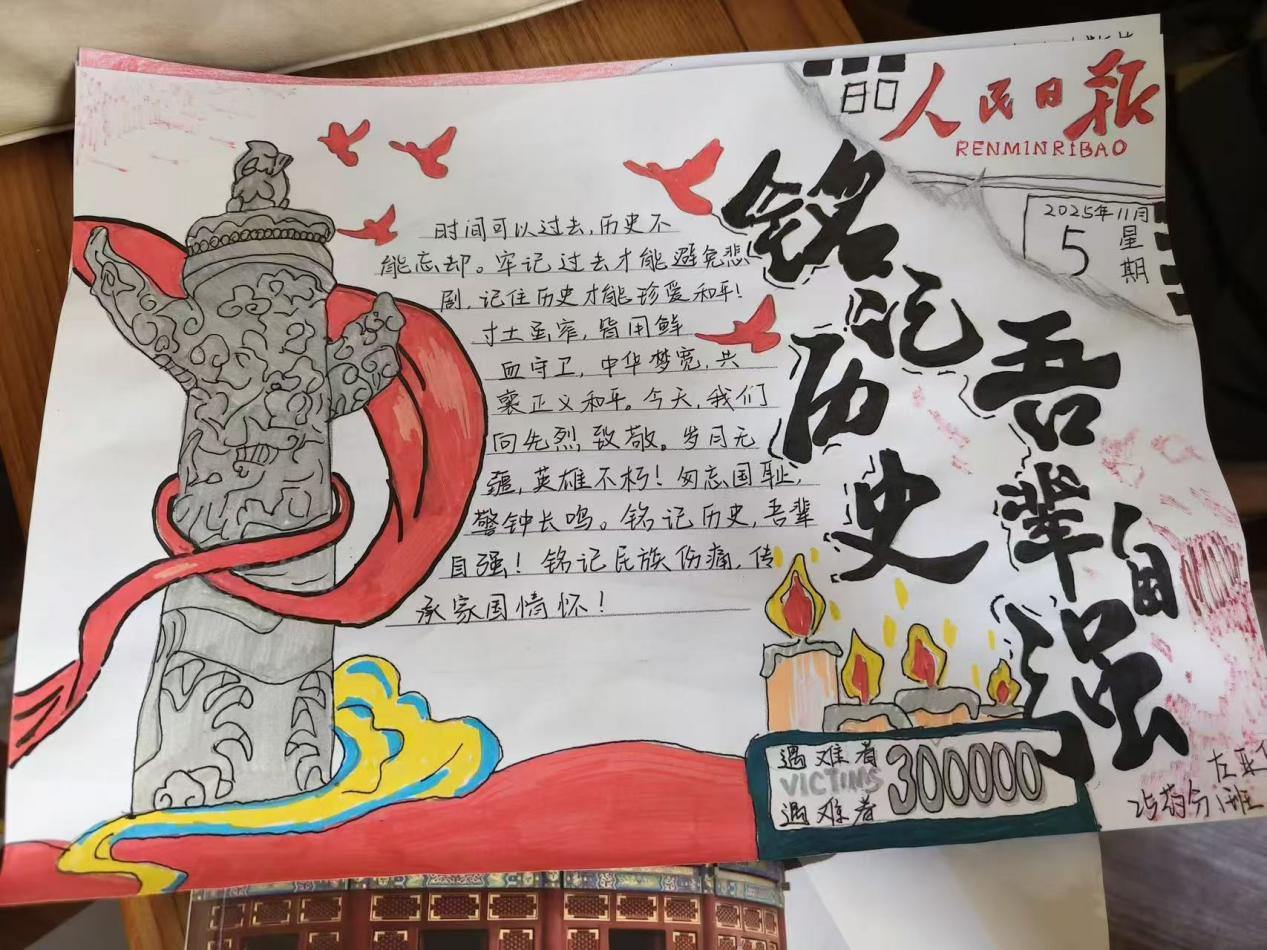 人民日报
RENMINRIBAO
2025年11月
5
星期
铭记历史
吾辈自强
时间可以过去,历史不
能忘却。牢记过去才能避免悲
剧,记住历史才能珍爱和平!
寸土虽窄,皆用鲜
血守卫,中华梦宽,共
襄正义和平。今天,我们
向先烈致敬。岁月无
疆,英雄不朽!勿忘国耻,
警钟长鸣。铭记历史,吾辈
自强!铭记民族伤痛,传
承家国情怀!
遇难者
VICTIMS 300000
遇难者
25药分1班